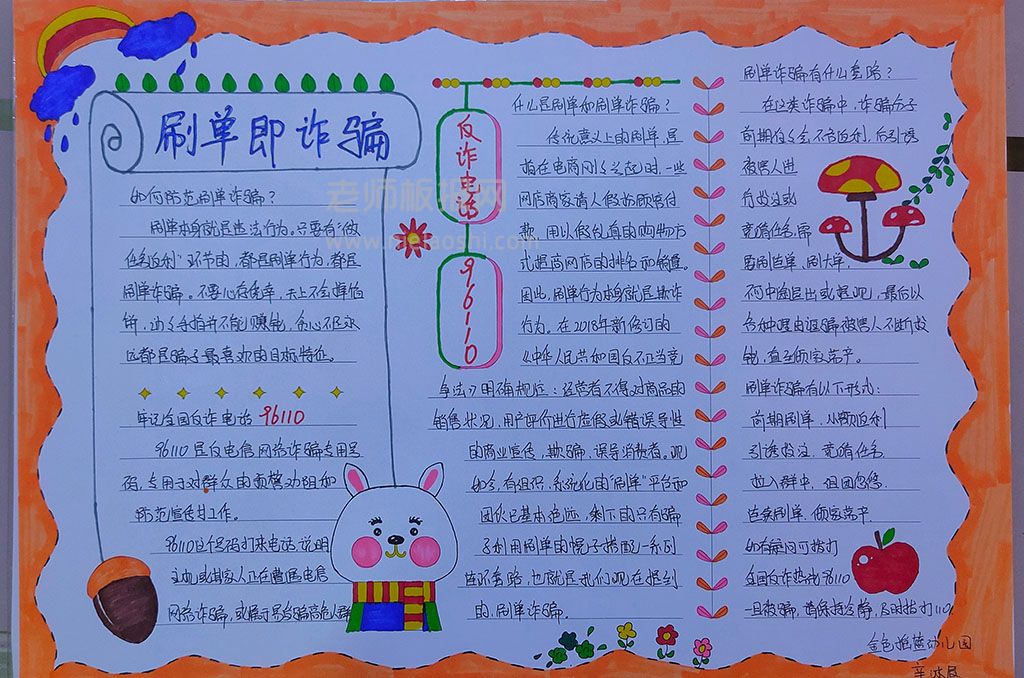 刷单即诈骗
如何防范刷单诈骗？
刷单本身就是违法行为。只要有“做
任务返利”环节的，都是刷单行为，都是
刷单诈骗。不要心存侥幸，天上不会掉馅
饼，动动手指并不能赚钱，贪心不足永
远都是骗子最喜欢的目标特征。
牢记全国反诈电话 96110
96110是反电信网络诈骗专用号
码，专用于对群众的预警劝阻和
防范宣传等工作。
96110这个号码打来电话，说明
主机或其家人正在遭遇电信
网络诈骗，或属于易受骗高危人群
反诈电话
96110
什么是刷单和刷单诈骗？
传统意义上的刷单，是
指在电商网络兴起时，一些
网店商家请人假扮顾客付
款，用以假乱真的购物方
式提高网店的排名和销量。
因此，刷单行为本身就是欺诈
行为。在2018年新修订的
《中华人民共和国反不正当竞
争法》明确规定：经营者不得对商品的
销售状况，用户评价进行虚假或错误导性
的商业宣传，欺骗、误导消费者。现
如今，有组织、系统化的“刷单”平台和
团伙已基本绝迹，剩下的只有骗
子利用刷单的幌子搭配一系列
诈骗套路，也就是我们现在提到
的，刷单诈骗。
刷单诈骗有什么套路？
在这类诈骗中，诈骗分子
前期往往会小节返利，后引诱
被害人进
行投注或
竞猜任务，需
要刷些单、刷大单，
不可中途退出或提现，最后以
各种理由诓骗被害人不断做
钱，直至倾家荡产。
刷单诈骗有以下形式：
前期刷单，小额返利
引诱投注，竞猜任务
拉入群中，组团忽悠
连续刷单，倾家荡产
如有疑问可拨打
全国反诈热线96110
一旦被骗，请保持冷静，及时拨打110
金色摇篮幼儿园
老师板报网
www.mclaoshi.com